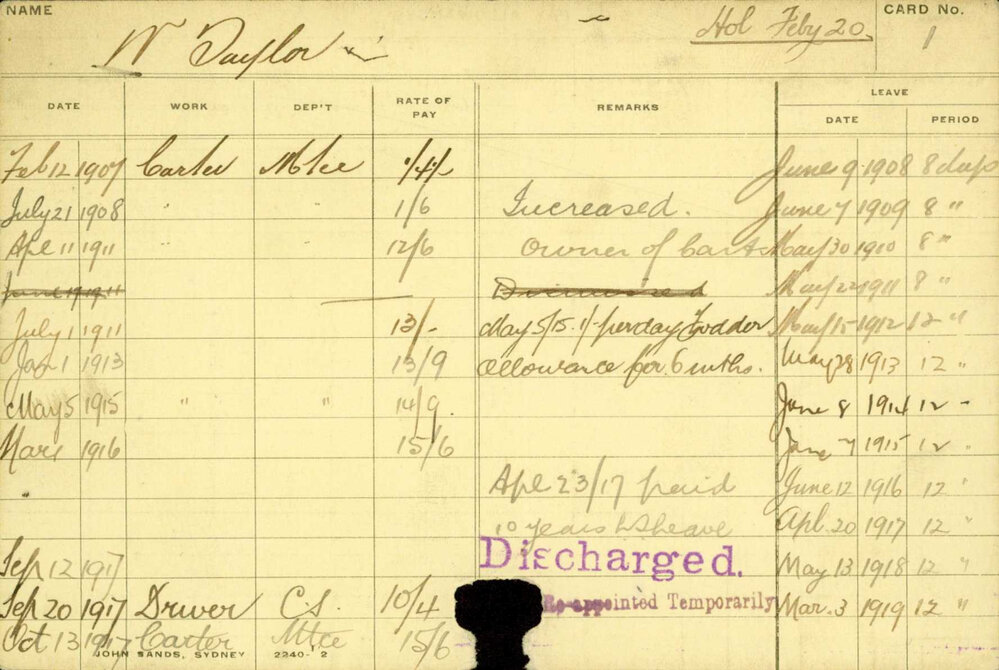 NAME W Taylor Hol Feby 20. CARD No. 1
LEAVE
DATE WORK DEP'T RATE OF PAY REMARKS DATE PERIOD
Feb 12 1907 Carter Mtce /4/- June 9 1908 8 days
July 21 1908 " " 1/6 Increased. June 7 1909 8 "
Apl 11 1911 " " 12/6 Owner of Cart May 30 1910 8 "
June 19 1911 Dismissed May 22 1911 8 "
July 1 1911 13/- May 5/15. 1/- per day Fodder May 15 1912 12 "
Jan 1 1913 13/9 allowance for 6 mths. May 28 1913 12 "
May 5 1915 " " 14/9. June 8 1914 12 "
Mar 1 1916 15/6 June 7 1915 12 "
" Apl 23/17 paid June 12 1916 12 "
10 years Leave Apl. 20 1917 12 "
Sep 12 1917 Discharged. May 13 1918 12 "
Sep 20 1917 Driver C.S. 10/4 Re-appointed Temporarily Mar. 3 1919 12 "
Oct 13 1917 Carter Mtce 15/6
JOHN SANDS, SYDNEY 2240-'2